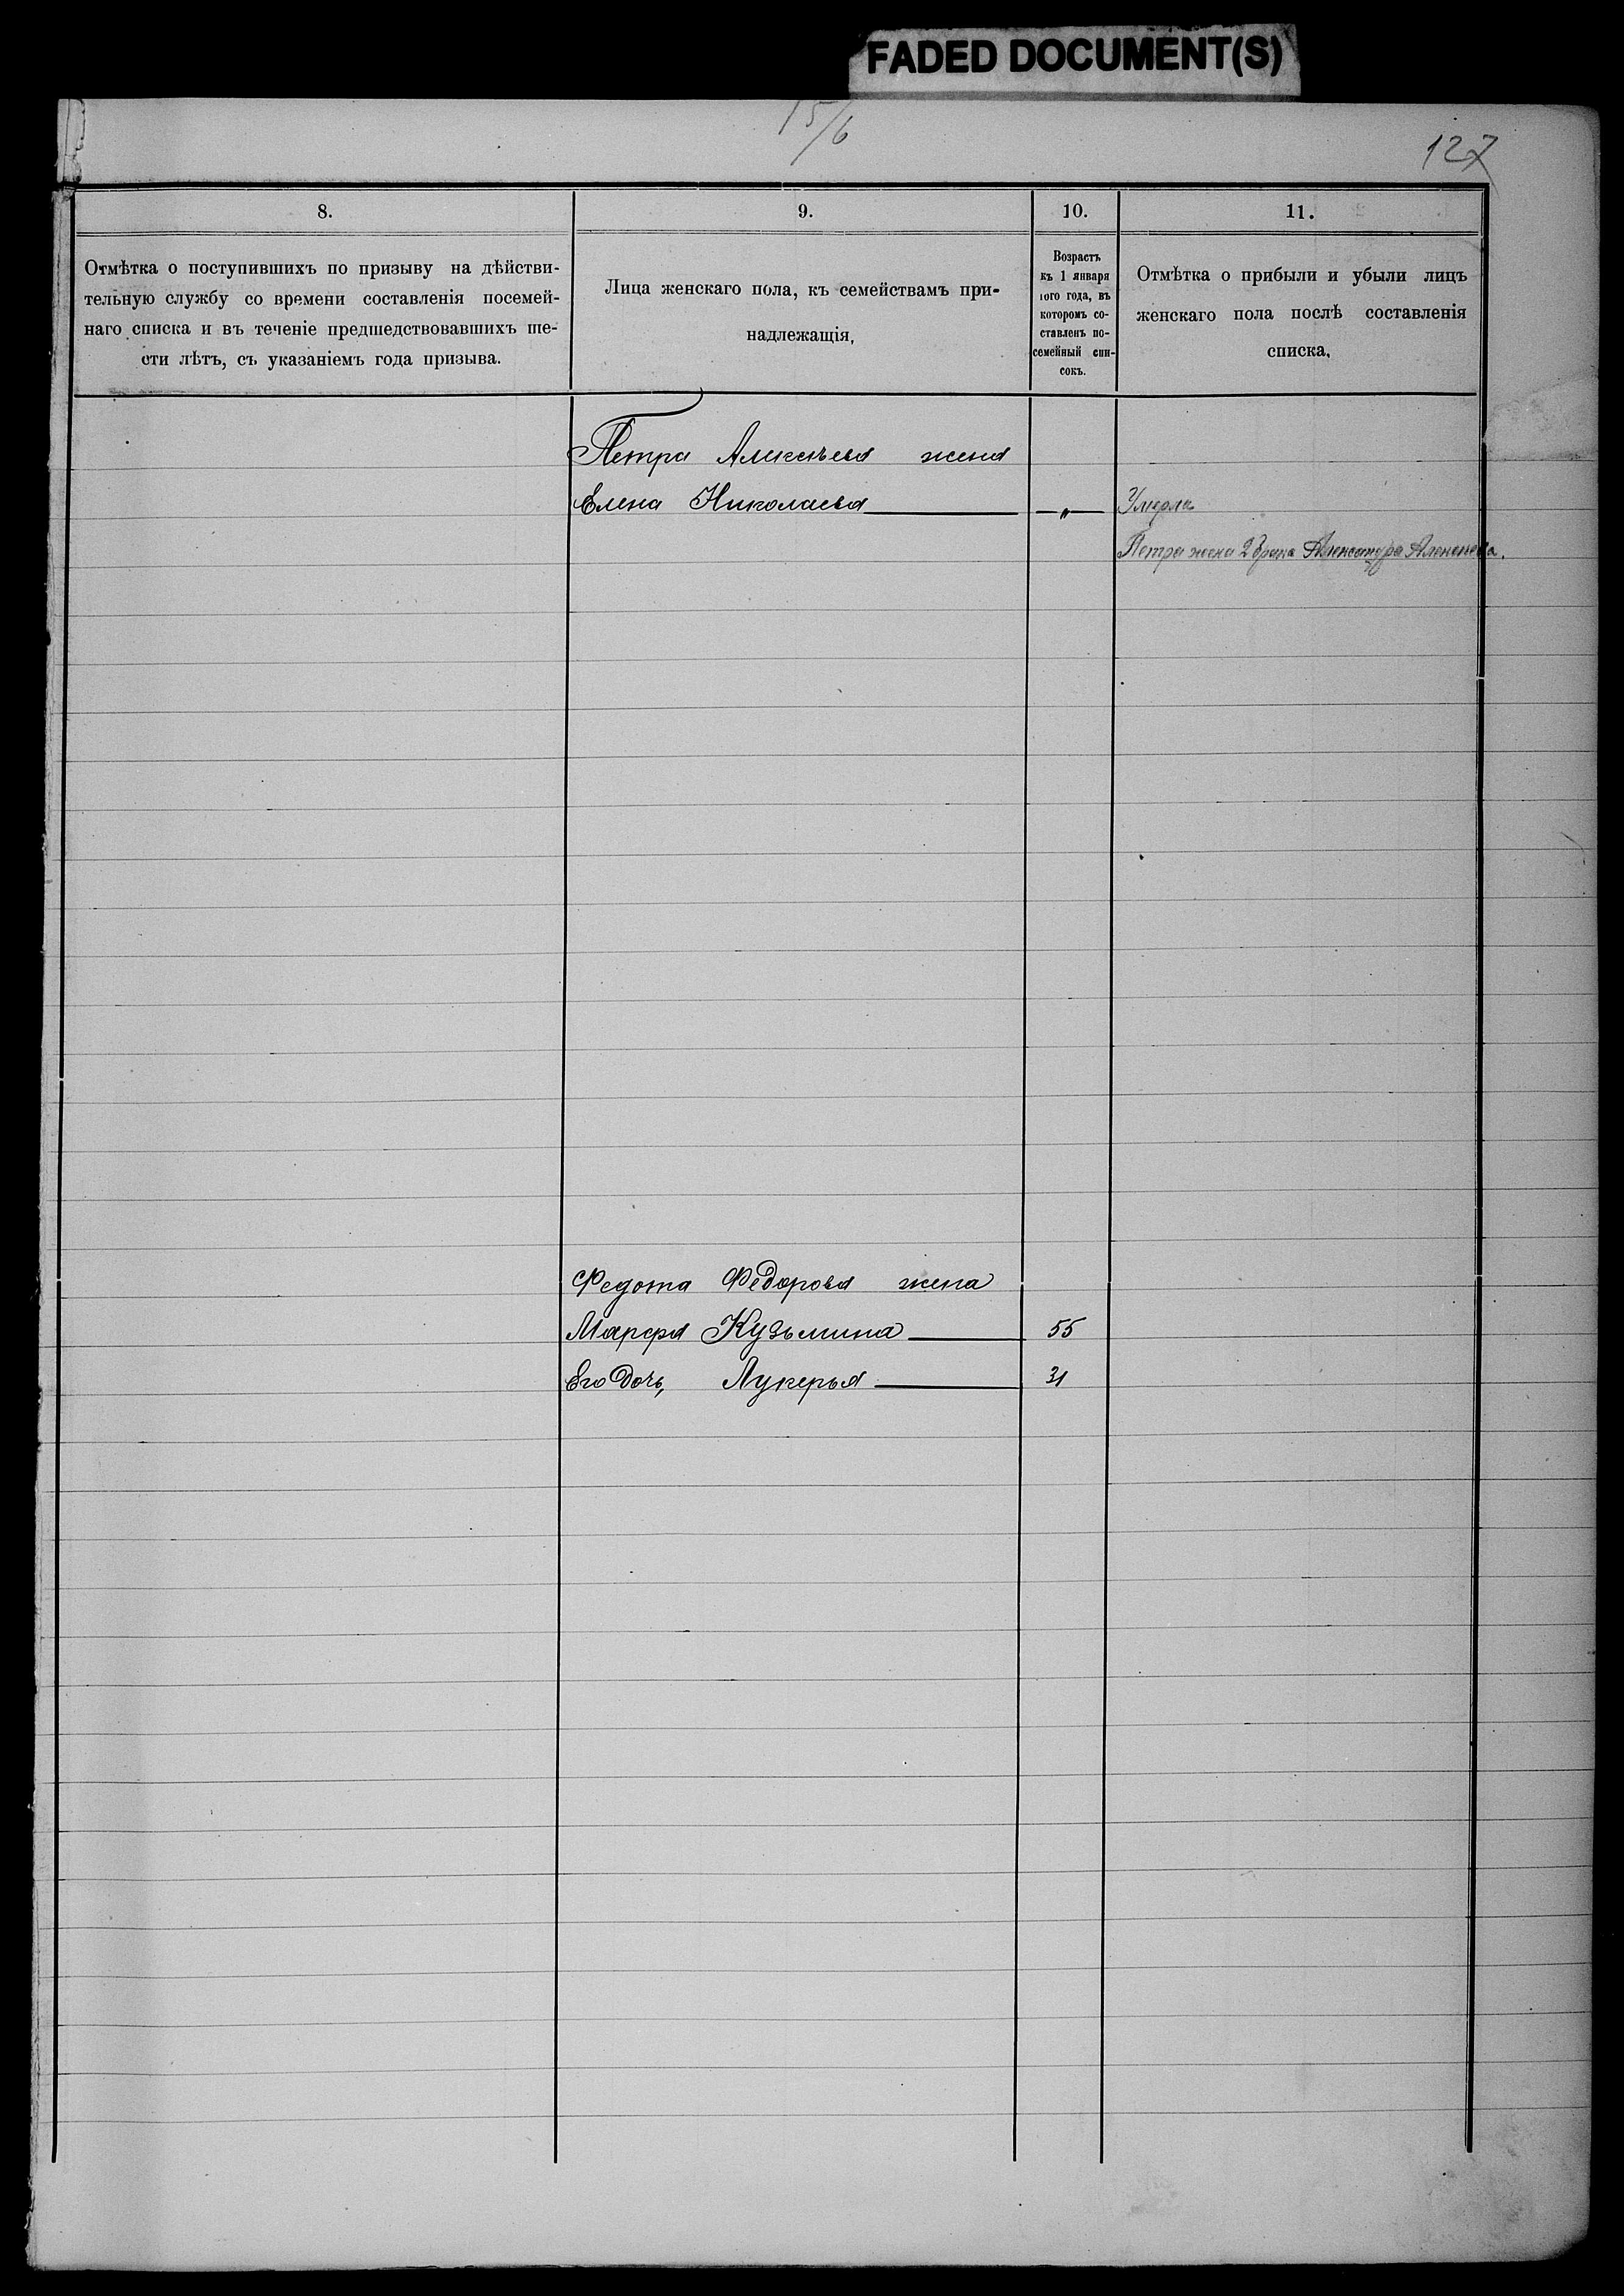 FADED DOCUMENT(S)
15/6
127
8.
9.
10.
11.
Отмѣтка о поступившихъ по призыву на дѣйстви-
тельную службу со времени составленія посемей-
наго списка и въ теченіе предшедствовавшихъ ше-
сти лѣтъ, съ указаніемъ года призыва.
Лица женскаго пола, къ семействамъ при-
надлежащія,
Возрастъ
къ 1 января
того года, въ
которомъ со-
ставленъ по-
семейный спи-
сокъ.
Отмѣтка о прибыли и убыли лицъ
женскаго пола послѣ составленія
списка.
Петра Алексѣева жена
Елена Николаева — „ — Умерла
Петра жена 2 брака Александра Алексеева.
Федота Федорова жена
Марфа Кузьмина 55
Его дочь, Лукерья 31